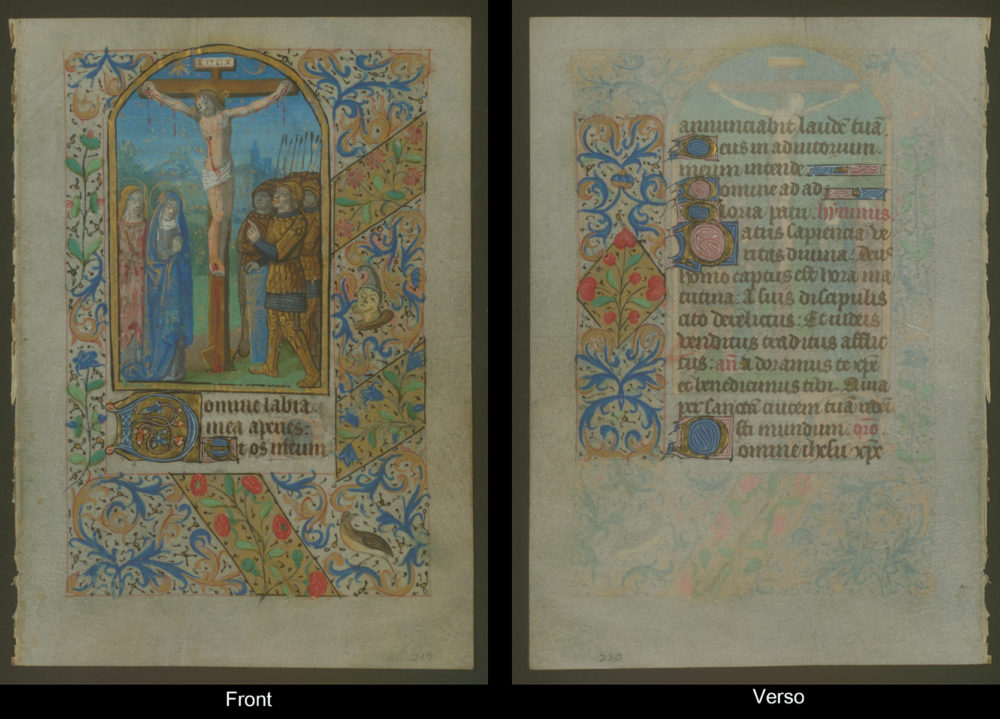 INRI
omine labia
mea aperies:
Et os meum
annunciabit laudē tuā
Deus in adiutorium
meum intende
Domine ad ad
Gloria patri. hymnus
Patris sapiencia ve
ritas divina. Deus
homo captus est hora ma
tutina: A suis discipulis
cito derelictus: Et iudeis
venditus traditus afflic
tus: añ Adoramus te xp̄e
et benedicimus tibi. Quia
per sanctā crucem tuā redem
isti mundum. oro.
Domine ihesu xp̄e
219
220
Front
Verso